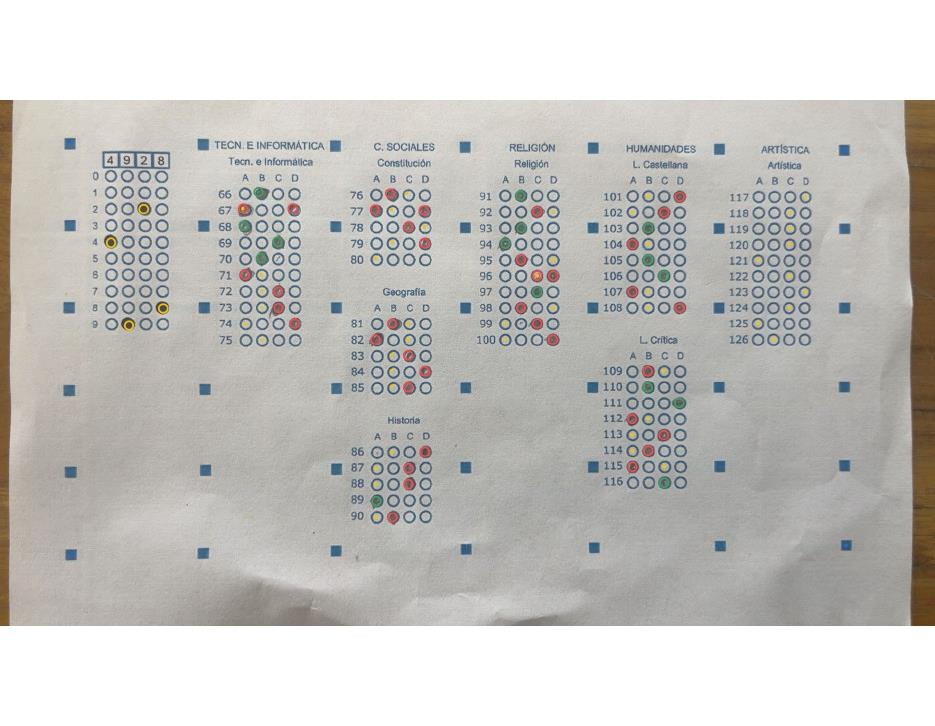 4 9 2 8
0
1
2
3
4
5
6
7
8
9
TECN. E INFORMÁTICA
Tecn. e Informática
A B C D
66
67
68
69
70
71
72
73
74
75
C. SOCIALES
Constitución
A B C D
76
77
78
79
80
Geografía
A B C D
81
82
83
84
85
Historia
A B C D
86
87
88
89
90
RELIGIÓN
Religión
A B C D
91
92
93
94
95
96
97
98
99
100
HUMANIDADES
L. Castellana
A B C D
101
102
103
104
105
106
107
108
L. Crítica
A B C D
109
110
111
112
113
114
115
116
ARTÍSTICA
Artística
A B C D
117
118
119
120
121
122
123
124
125
126